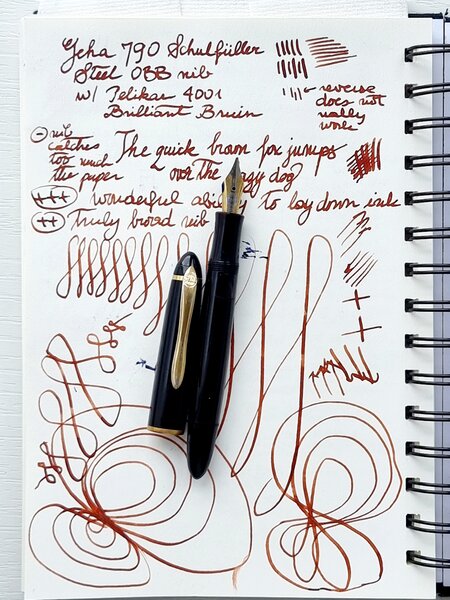 Geha 790 Schulfüller
Steel OBB nib
w/ Pelikan 4001
Brilliant Brown
← reverse
does not
really
work
⊖ nib
catches
too much
the paper
The quick brown fox jumps
over the dog
(+++) wonderful ability to lay down ink
(++) Truly broad nib